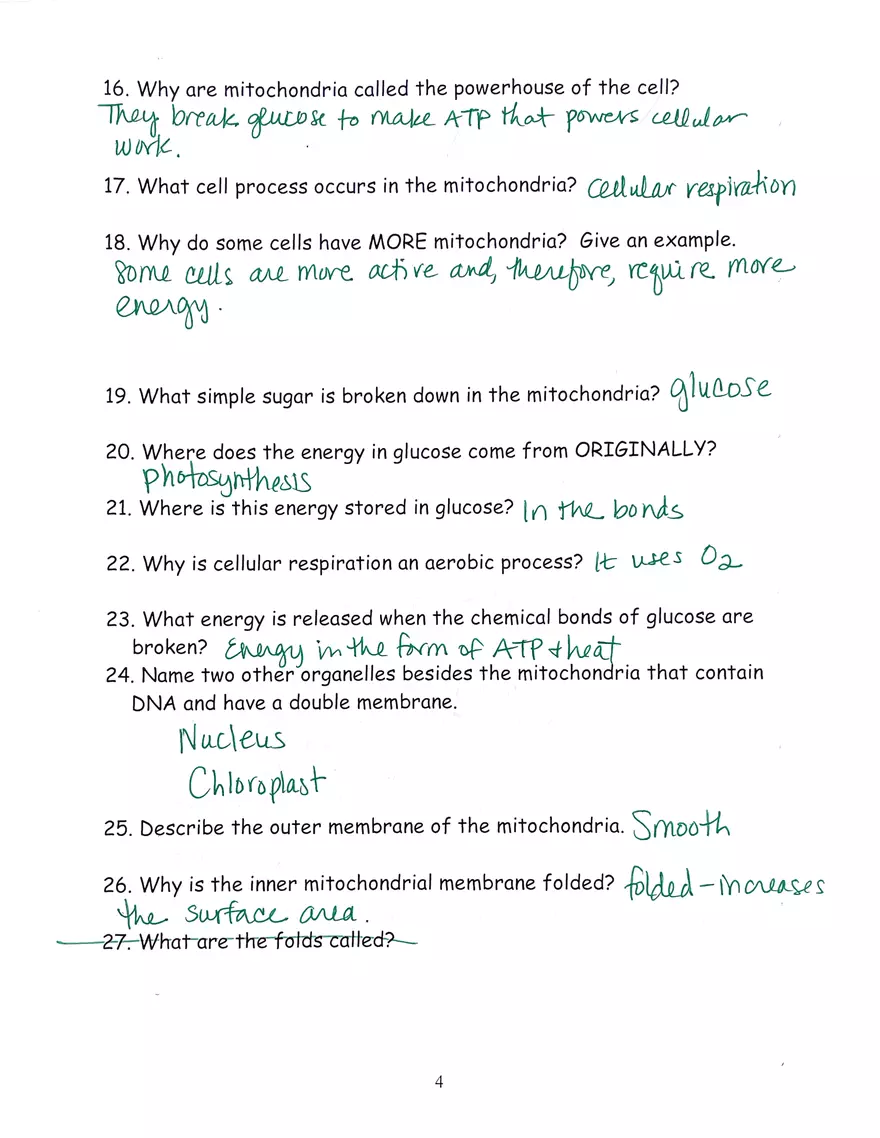 16. Why are mitochondria called the powerhouse of the cell?
They break glucose to make ATP that powers cellular
work.
17. What cell process occurs in the mitochondria? Cellular respiration
18. Why do some cells have MORE mitochondria? Give an example.
Some cells are more active and, therefore, require more
energy.
19. What simple sugar is broken down in the mitochondria? glucose
20. Where does the energy in glucose come from ORIGINALLY?
Photosynthesis
21. Where is this energy stored in glucose? In the bonds
22. Why is cellular respiration an aerobic process? It uses O2
23. What energy is released when the chemical bonds of glucose are
broken? Energy in the form of ATP & heat
24. Name two other organelles besides the mitochondria that contain
DNA and have a double membrane.
Nucleus
Chloroplast
25. Describe the outer membrane of the mitochondria. Smooth
26. Why is the inner mitochondrial membrane folded? folded - increases
the surface area.
27. What are the folds called?
4